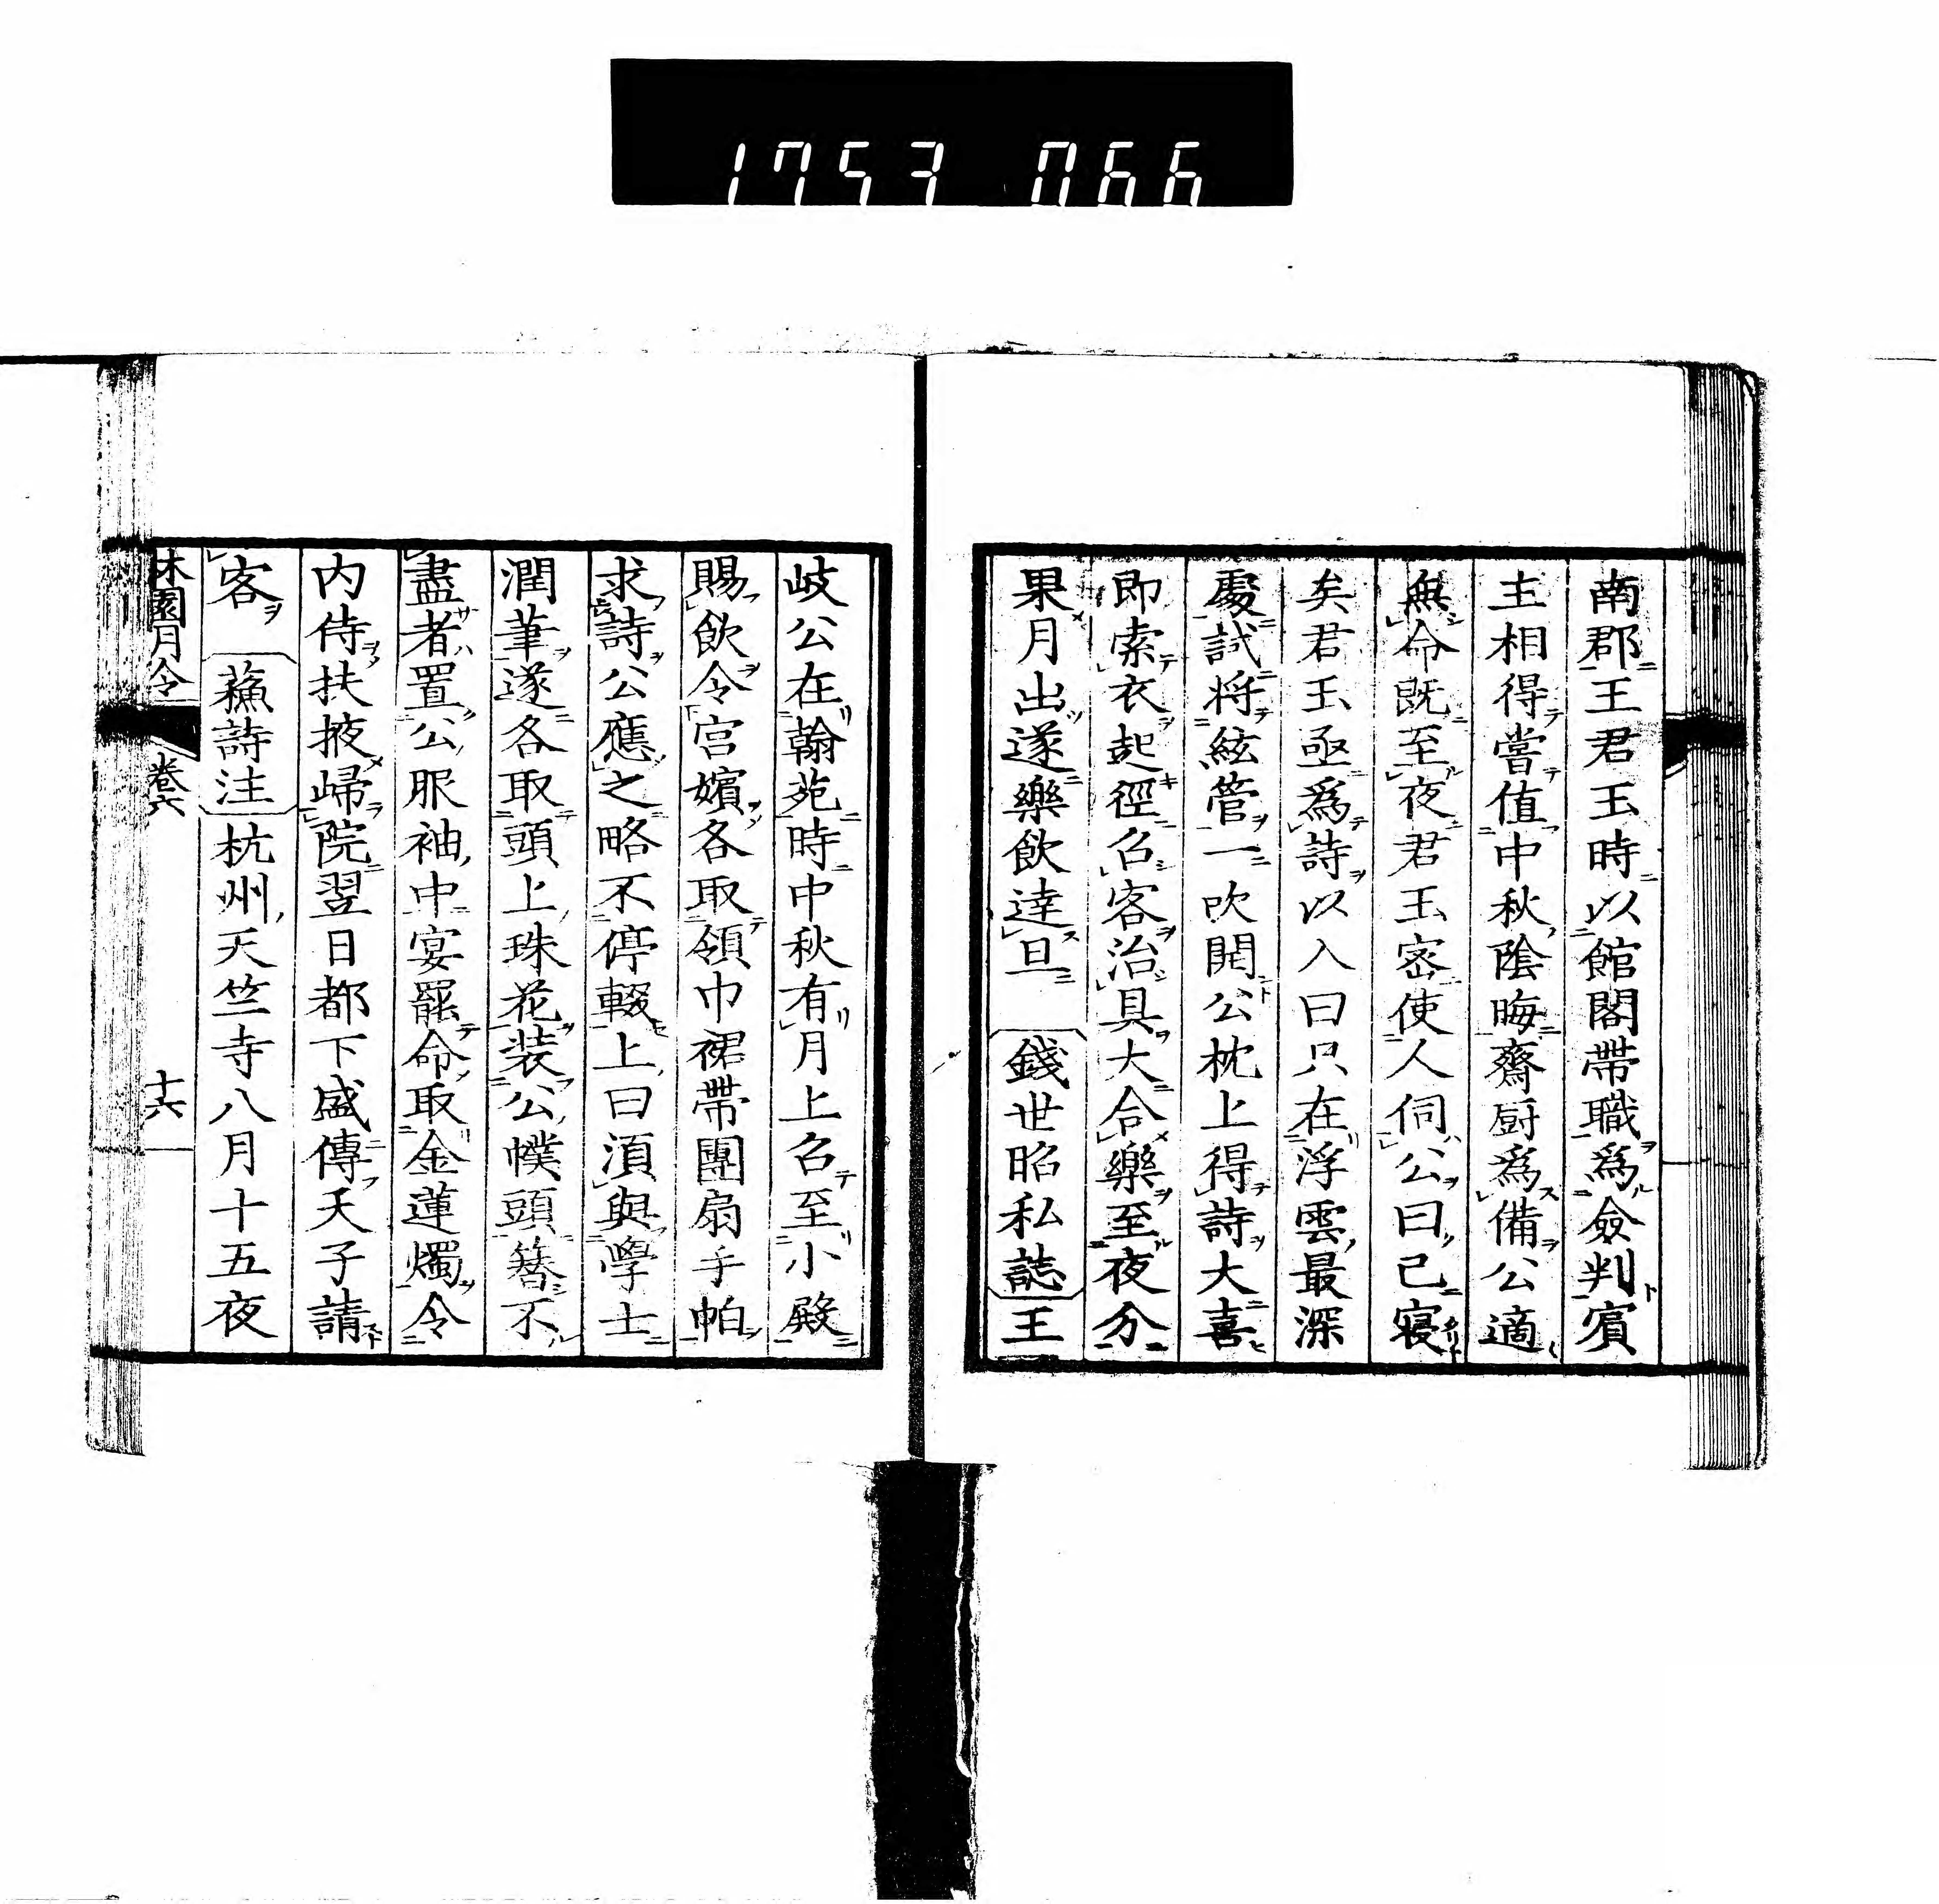 1753 066
南郡王君玉時以館閣帶職爲僉判賓
主相得嘗値中秋陰晦齋厨爲備公適
無命既至夜君玉密使人伺公曰已寝
矣君玉亟爲詩以入曰只在浮雲最深
處試将絃管一吹開公枕上得詩大喜
即索衣起徑召客治具大合樂至夜分
果月出遂樂飲達旦 錢世昭私誌 王
岐公在翰苑時中秋有月上召至小殿
賜飲令宫嬪各取領巾裙帶團扇手帕
求詩公應之略不停輟上曰湏與學士
潤筆遂各取頭上珠花装公幞頭簪不
盡者置公服袖中宴罷命取金蓮燭令
内侍扶掖歸院翌日都下盛傳天子請
客 蘓詩注 杭州天竺寺八月十五夜
休園月令 卷六 十六